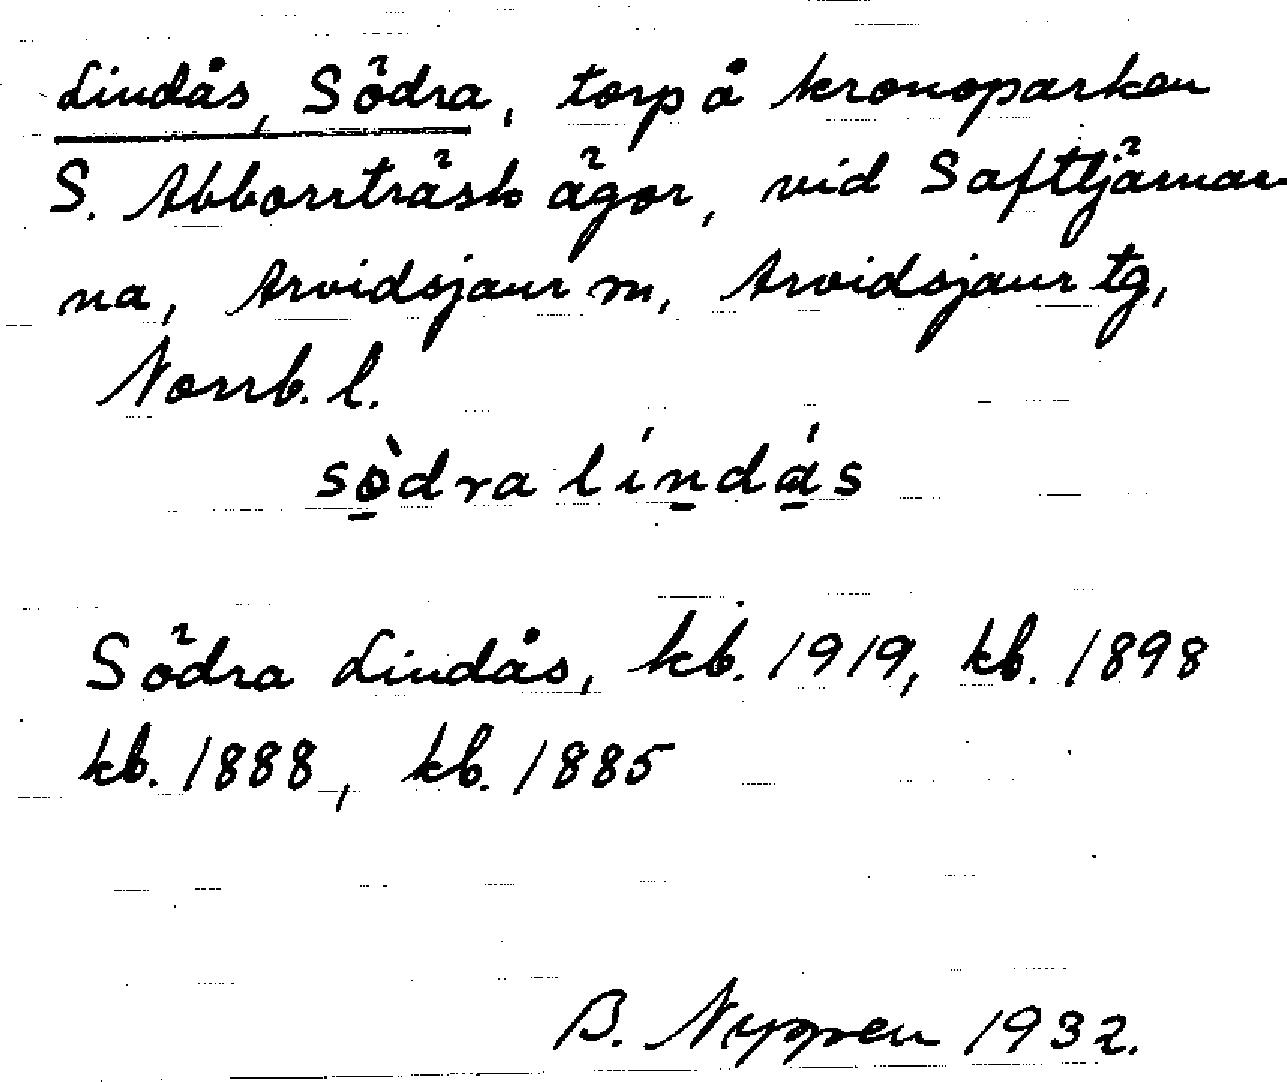 Lindås, Södra, torp å kronoparken
S. Abborrträsk ägor, vid Saftjärnar
na, Arvidsjaur sn, Arvidsjaur tg,
Norrb. l.
sö̀dra líndås
Södra Lindås, kb. 1919, kb. 1898
kb. 1888, kb. 1885
B. 1932.